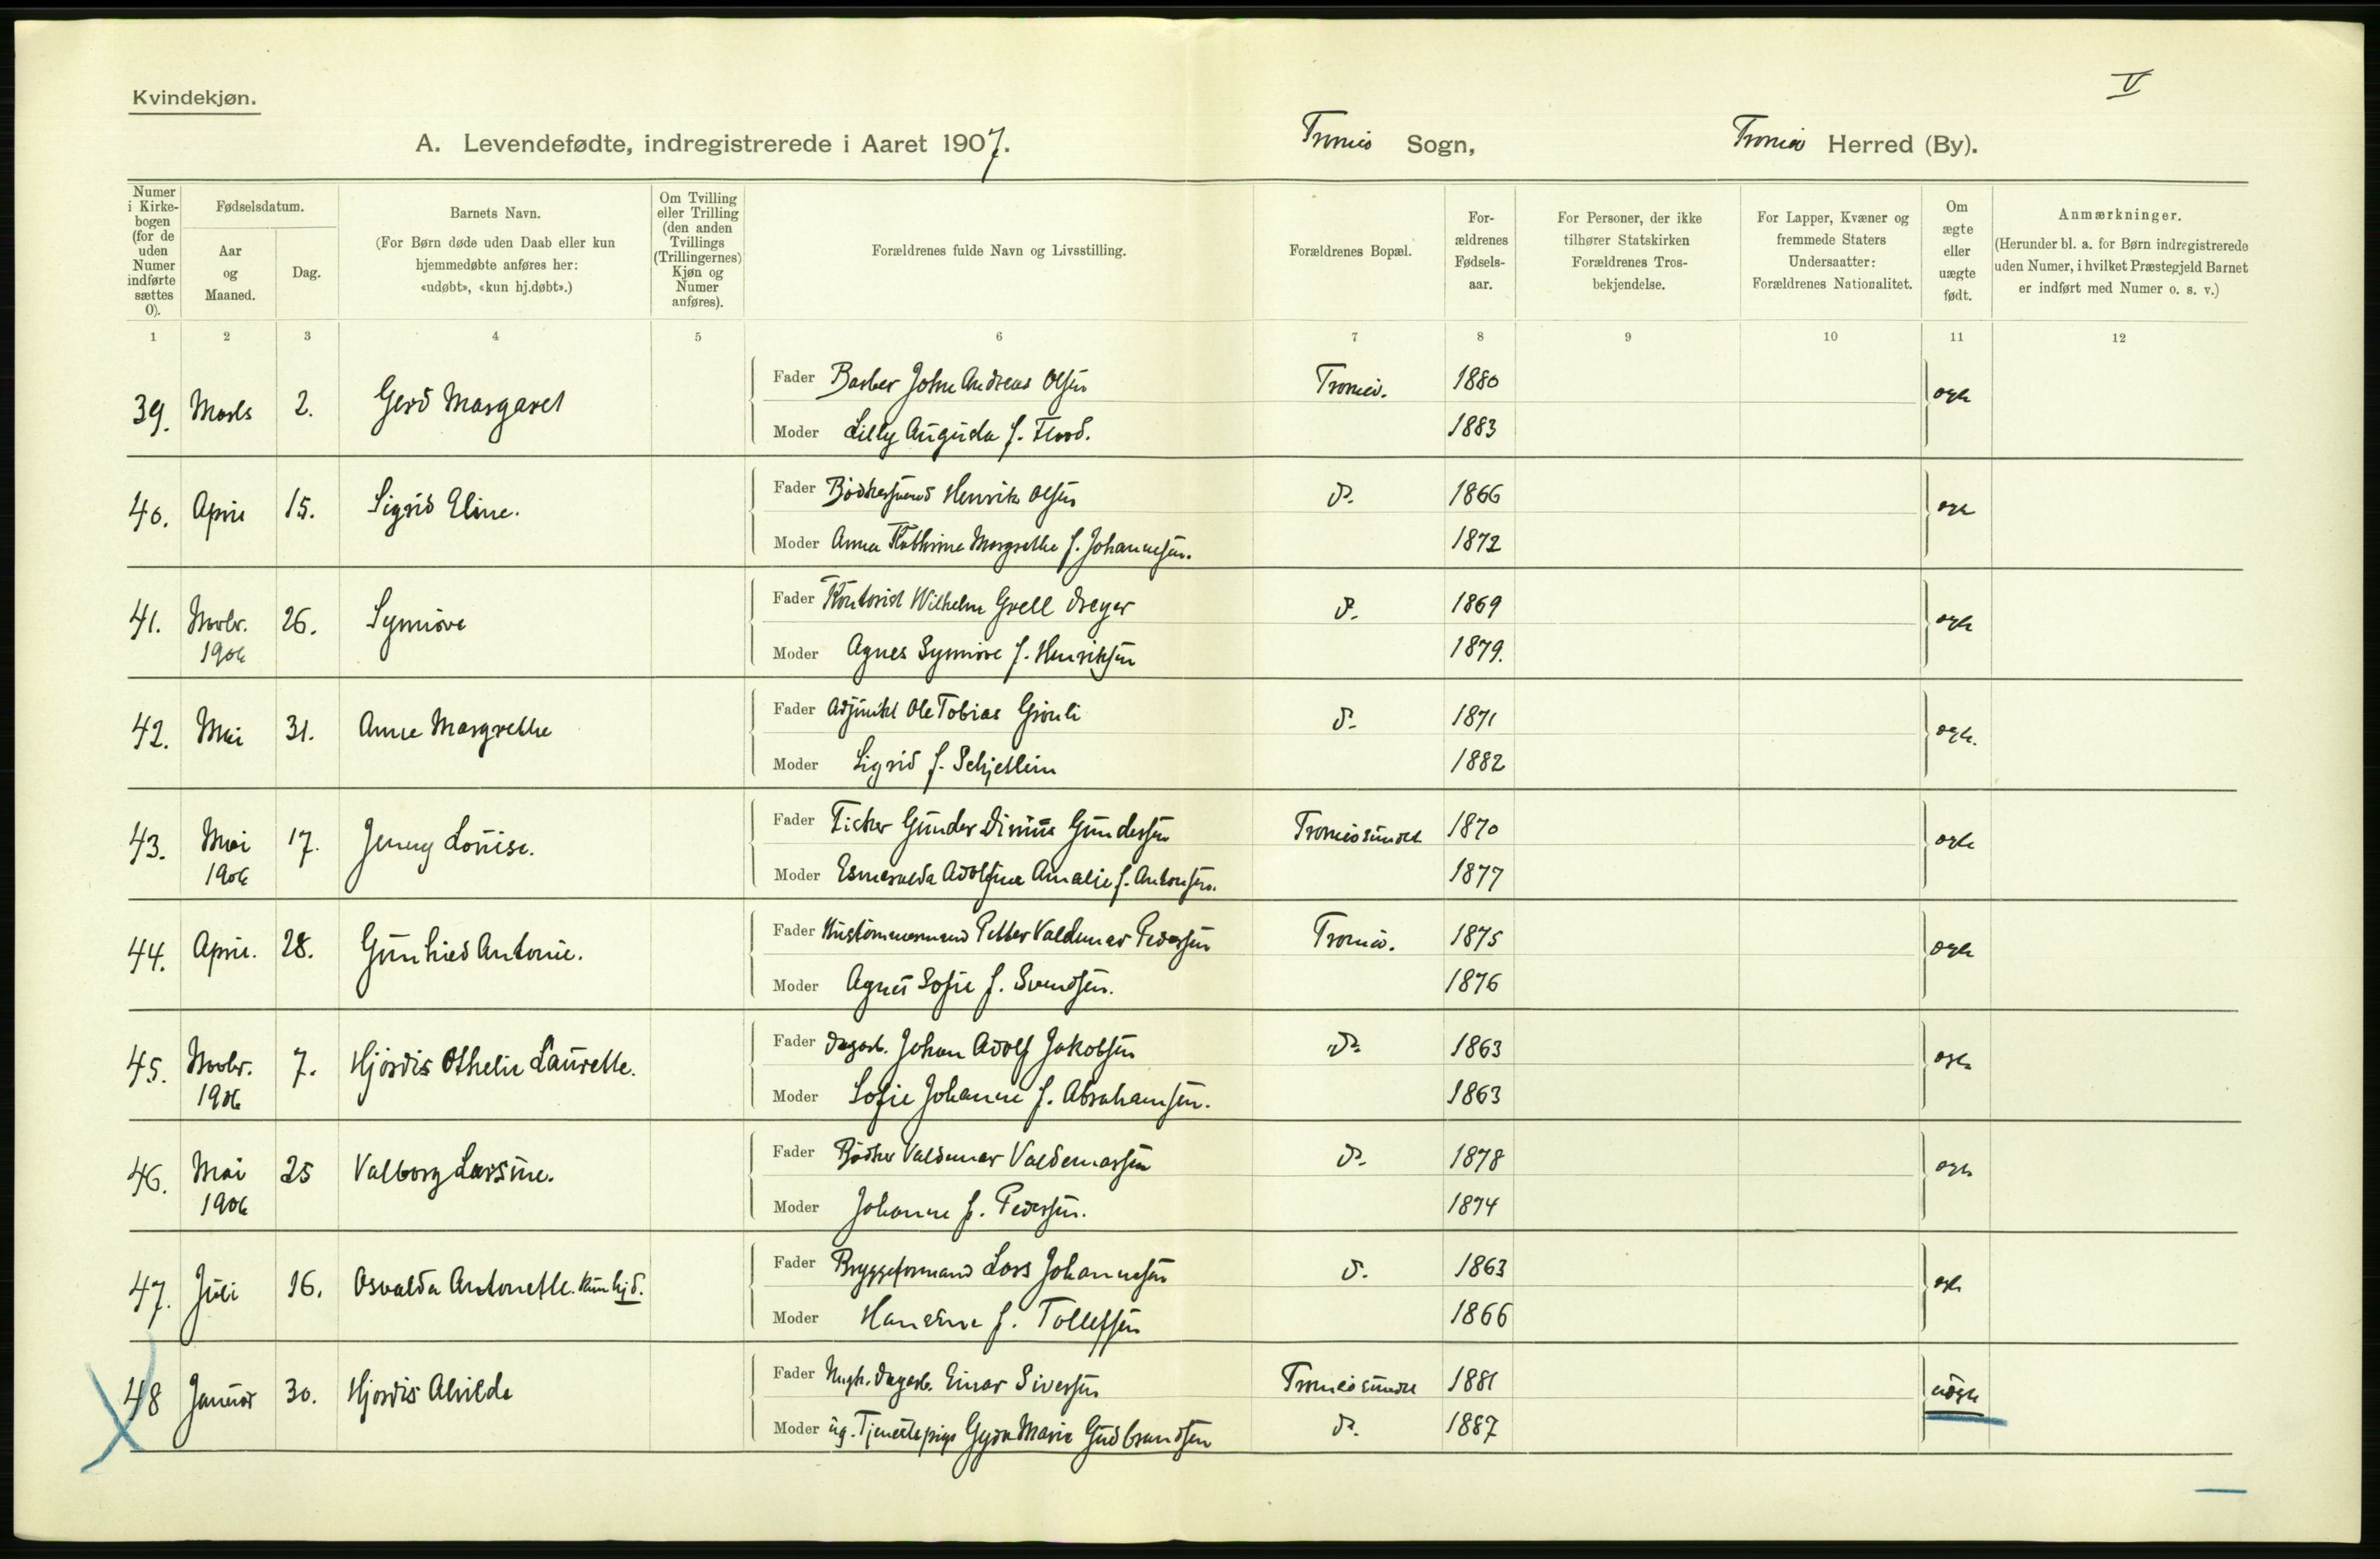 V
Kvindekjøn.
A. Levendefødte, indregistrerede i Aaret 1907. Tromsø Sogn, Tromsø Herred (By).
Numer i Kirkebogen (for de uden Numer indførte sættes 0).
Fødselsdatum.
Aar og Maaned.
Dag.
Barnets Navn.
(For Børn døde uden Daab eller kun hjemmedøbte anføres her: «udøbt», «kun hj.døbt».)
Om Tvilling eller Trilling (den anden Tvillings (Trillingernes) Kjøn og Numer anføres).
Forældrenes fulde Navn og Livsstilling.
Forældrenes Bopæl.
Forældrenes Fødselsaar.
For Personer, der ikke tilhører Statskirken Forældrenes Trosbekjendelse.
For Lapper, Kvæner og fremmede Staters Undersaatter: Forældrenes Nationalitet.
Om ægte eller uægte født.
Anmærkninger.
(Herunder bl. a. for Børn indregistrerede uden Numer, i hvilket Præstegjeld Barnet er indført med Numer o. s. v.)
1 2 3 4 5 6 7 8 9 10 11 12
39. Marts 2. Gerd Margaret Fader Barber John Andreas Olsen Tromsø. 1880 ægte
Moder Lilly Augusta f. Flood. 1883
40. April 15. Sigrid Eline. Fader Bødkersvend Henrik Olsen d. 1866 ægte
Moder Anna Kathrine Margrethe f. Johannesen. 1872
41. Novbr. 1906 26. Synnøve Fader Kontorist Wilhelm Grell Dreyer d. 1869 ægte
Moder Agnes Synnøve f. Henriksen 1879.
42. Mai 31. Anne Margrethe Fader Adjunkt Ole Tobias Grønli d. 1871 ægte.
Moder Sigrid f. Schjetlein 1882
43. Mai 1906 17. Jenny Louise. Fader Fisker Gunder Dinius Gundersen Tromsøsundet 1870 ægte
Moder Esmeralda Adolfine Amalie f. Antonsen. 1877
44. April. 28. Gunhild Antonie. Fader Hustømmermand Petter Valdemar Pedersen Tromsø. 1875 ægte
Moder Agnes Sofie f. Svendsen. 1876
45. Novbr. 1906 7. Hjørdis Othelie Laurette. Fader Dagarb. Johan Adolf Jakobsen d. 1863 ægte
Moder Sofie Johanne f. Abrahamsen. 1863
46. Mai 1906 25 Valborg Larsine. Fader Bødker Valdemar Valdemarsen d. 1878 ægte
Moder Johanne f. Pedersen. 1874
47. Juli 16. Osvalda Antonette. kun hjd. Fader Bryggeformand Lars Johannesen d. 1863 ægte
Moder Hansine f. Tollefsen 1866
48 Januar 30. Hjørdis Alvilde Fader Ungk. Dagarb. Einar Siversen Tromsøsundet 1881 uægte
Moder ug. Tjenestepige Gyda Marie Gudbrandsen d. 1887